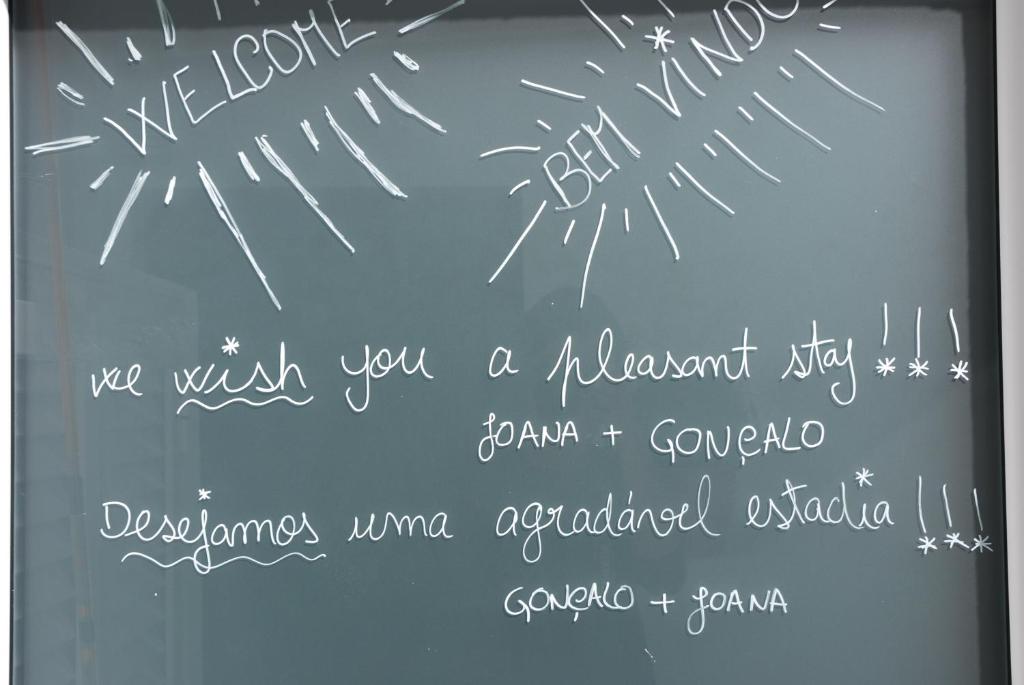 WELCOME
BEM VINDO
we wish you a pleasant stay!!!
JOANA + GONÇALO
Desejamos uma agradável estadia!!!
GONÇALO + JOANA